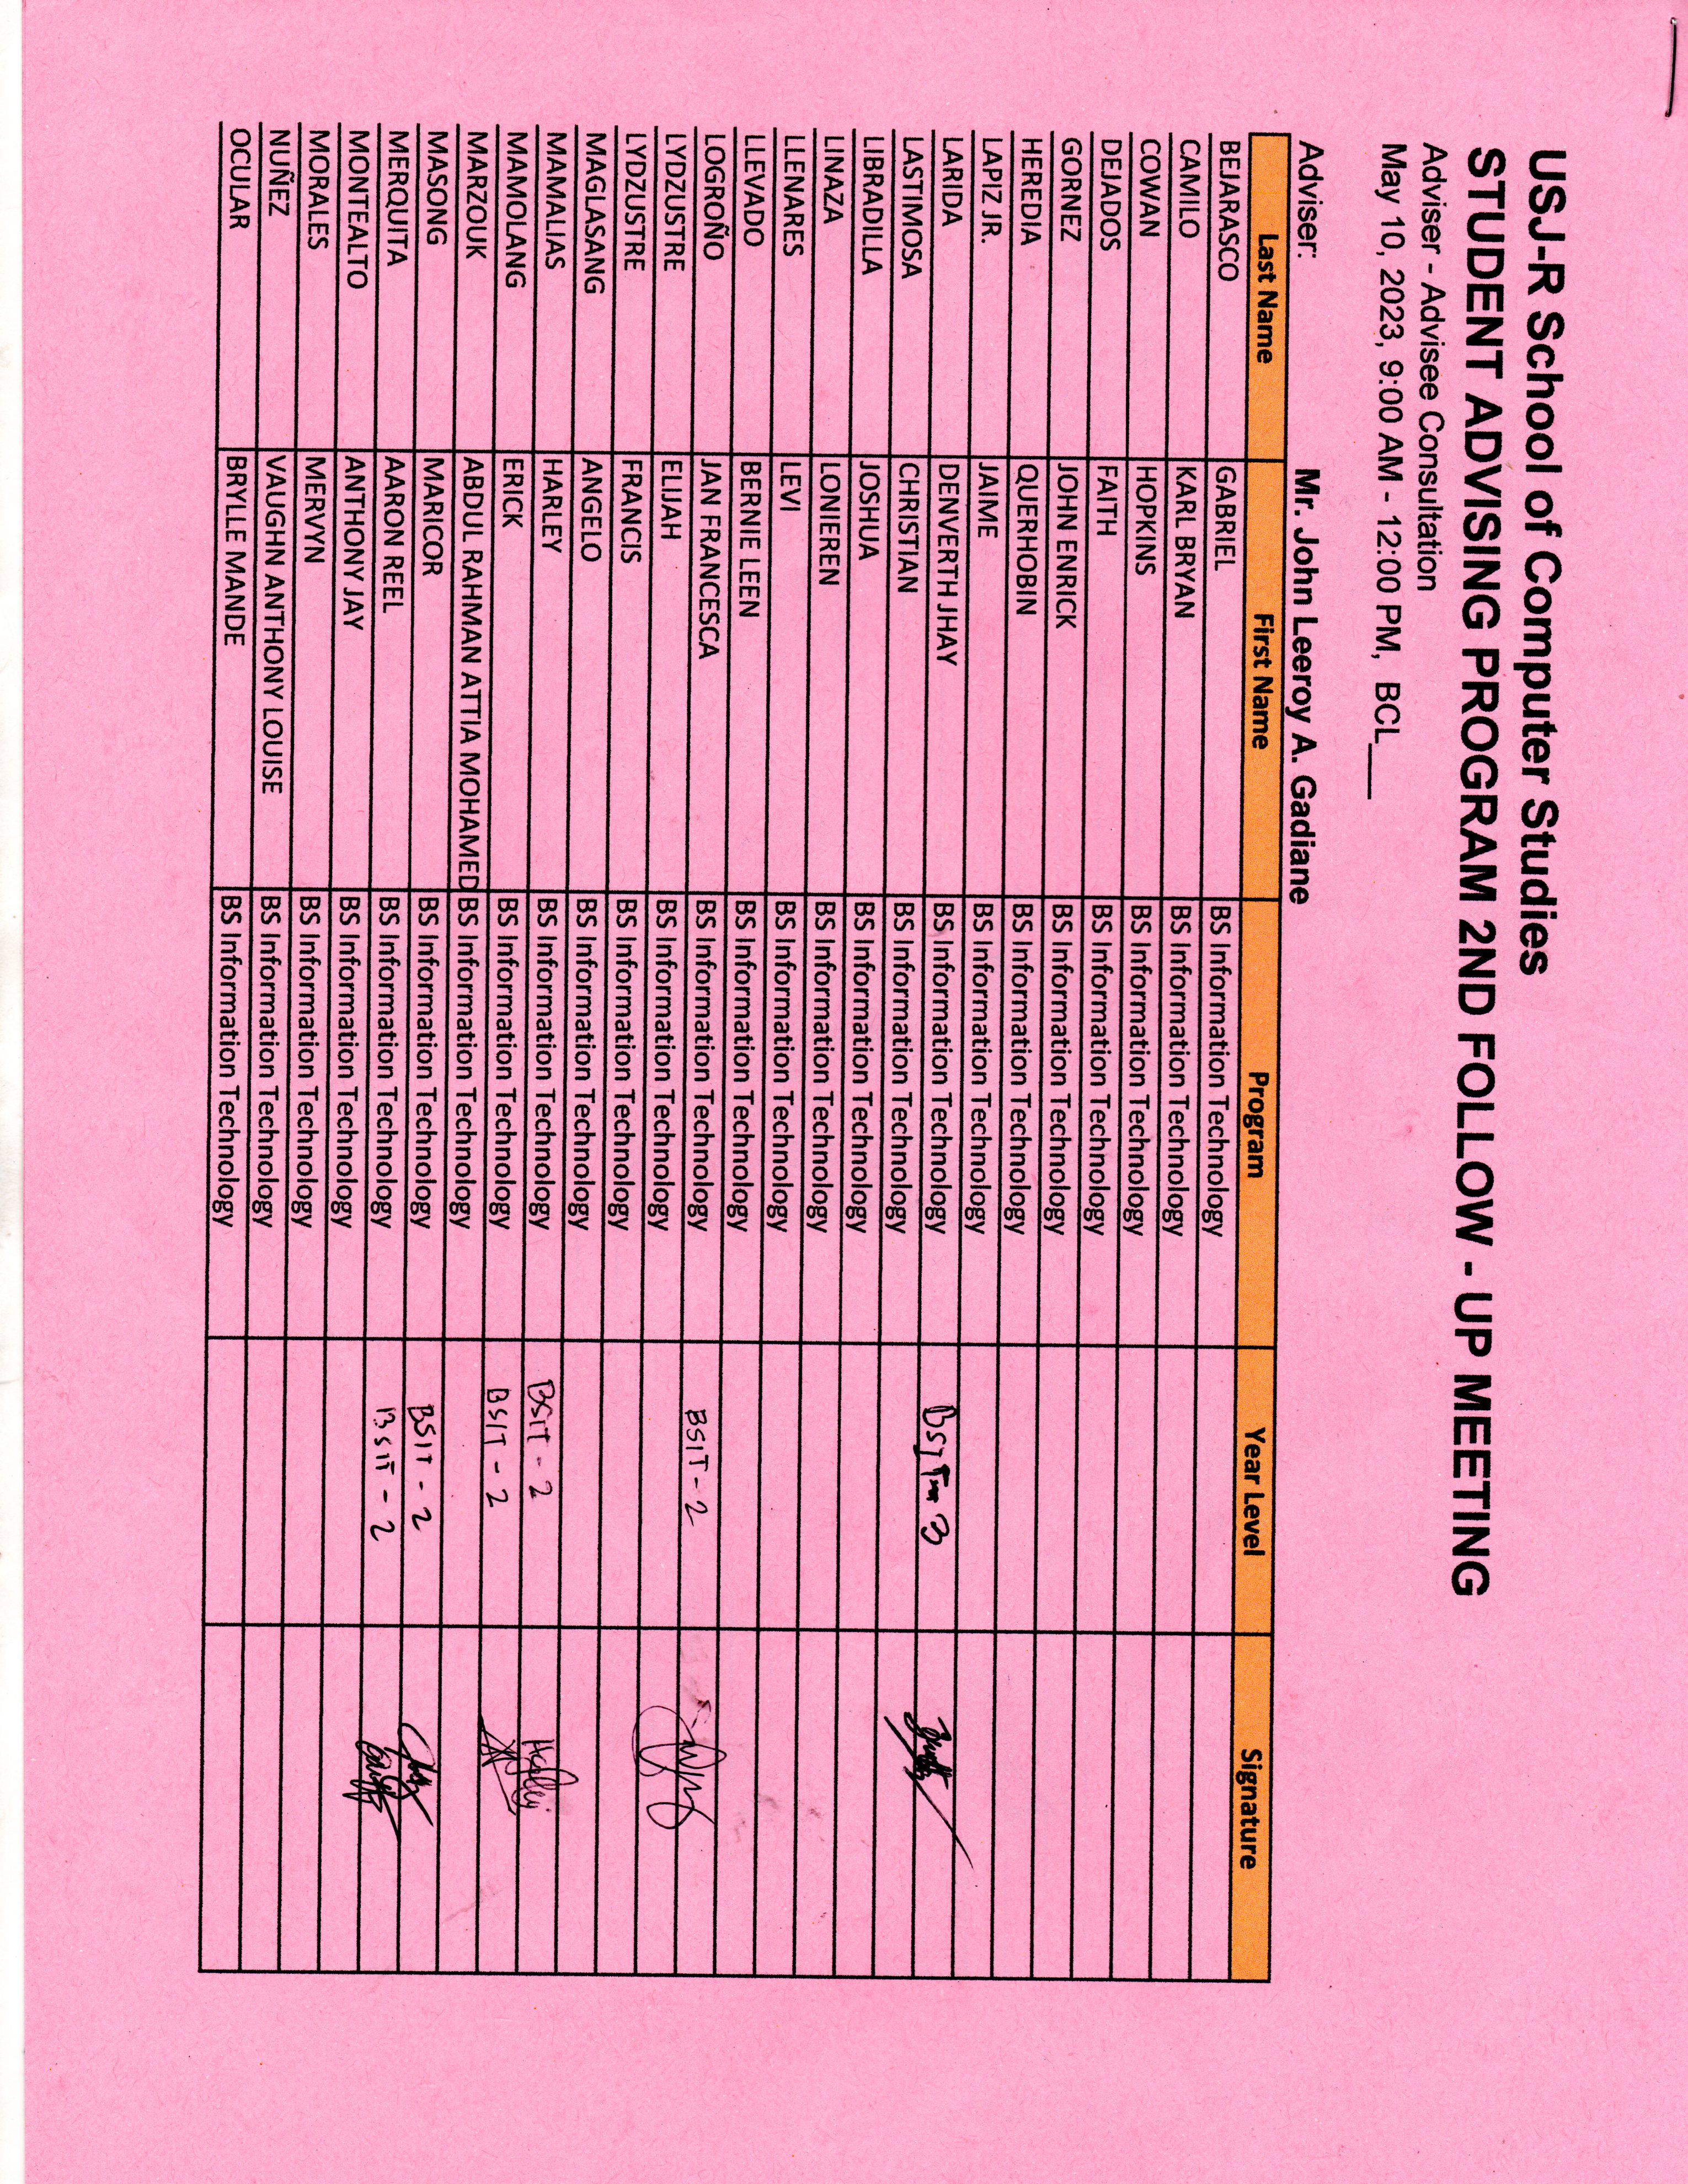 USJ-R School of Computer Studies
STUDENT ADVISING PROGRAM 2ND FOLLOW - UP MEETING
Adviser - Advisee Consultation
May 10, 2023, 9:00 AM - 12:00 PM, BCL___
Adviser: Mr. John Leeroy A. Gadiane
Last Name First Name Program Year Level Signature
BEJARASCO GABRIEL BS Information Technology
CAMILO KARL BRYAN BS Information Technology
COWAN HOPKINS BS Information Technology
DEJADOS FAITH BS Information Technology
GORNEZ JOHN ENRICK BS Information Technology
HEREDIA QUERHOBIN BS Information Technology
LAPIZ JR. JAIME BS Information Technology
LARIDA DENVERTH JHAY BS Information Technology BSIT - 3
LASTIMOSA CHRISTIAN BS Information Technology
LIBRADILLA JOSHUA BS Information Technology
LINAZA LONIEREN BS Information Technology
LLENARES LEVI BS Information Technology
LLEVADO BERNIE LEEN BS Information Technology
LOGROÑO JAN FRANCESCA BS Information Technology BSIT - 2
LYDZUSTRE ELIJAH BS Information Technology
LYDZUSTRE FRANCIS BS Information Technology
MAGLASANG ANGELO BS Information Technology
MAMALIAS HARLEY BS Information Technology BSIT - 2 Harley
MAMOLANG ERICK BS Information Technology BSIT - 2
MARZOUK ABDUL RAHMAN ATTIA MOHAMED BS Information Technology
MASONG MARICOR BS Information Technology BSIT - 2
MERQUITA AARON REEL BS Information Technology BSIT - 2
MONTEALTO ANTHONY JAY BS Information Technology
MORALES MERVYN BS Information Technology
NUÑEZ VAUGHN ANTHONY LOUISE BS Information Technology
OCULAR BRYLLE MANDE BS Information Technology